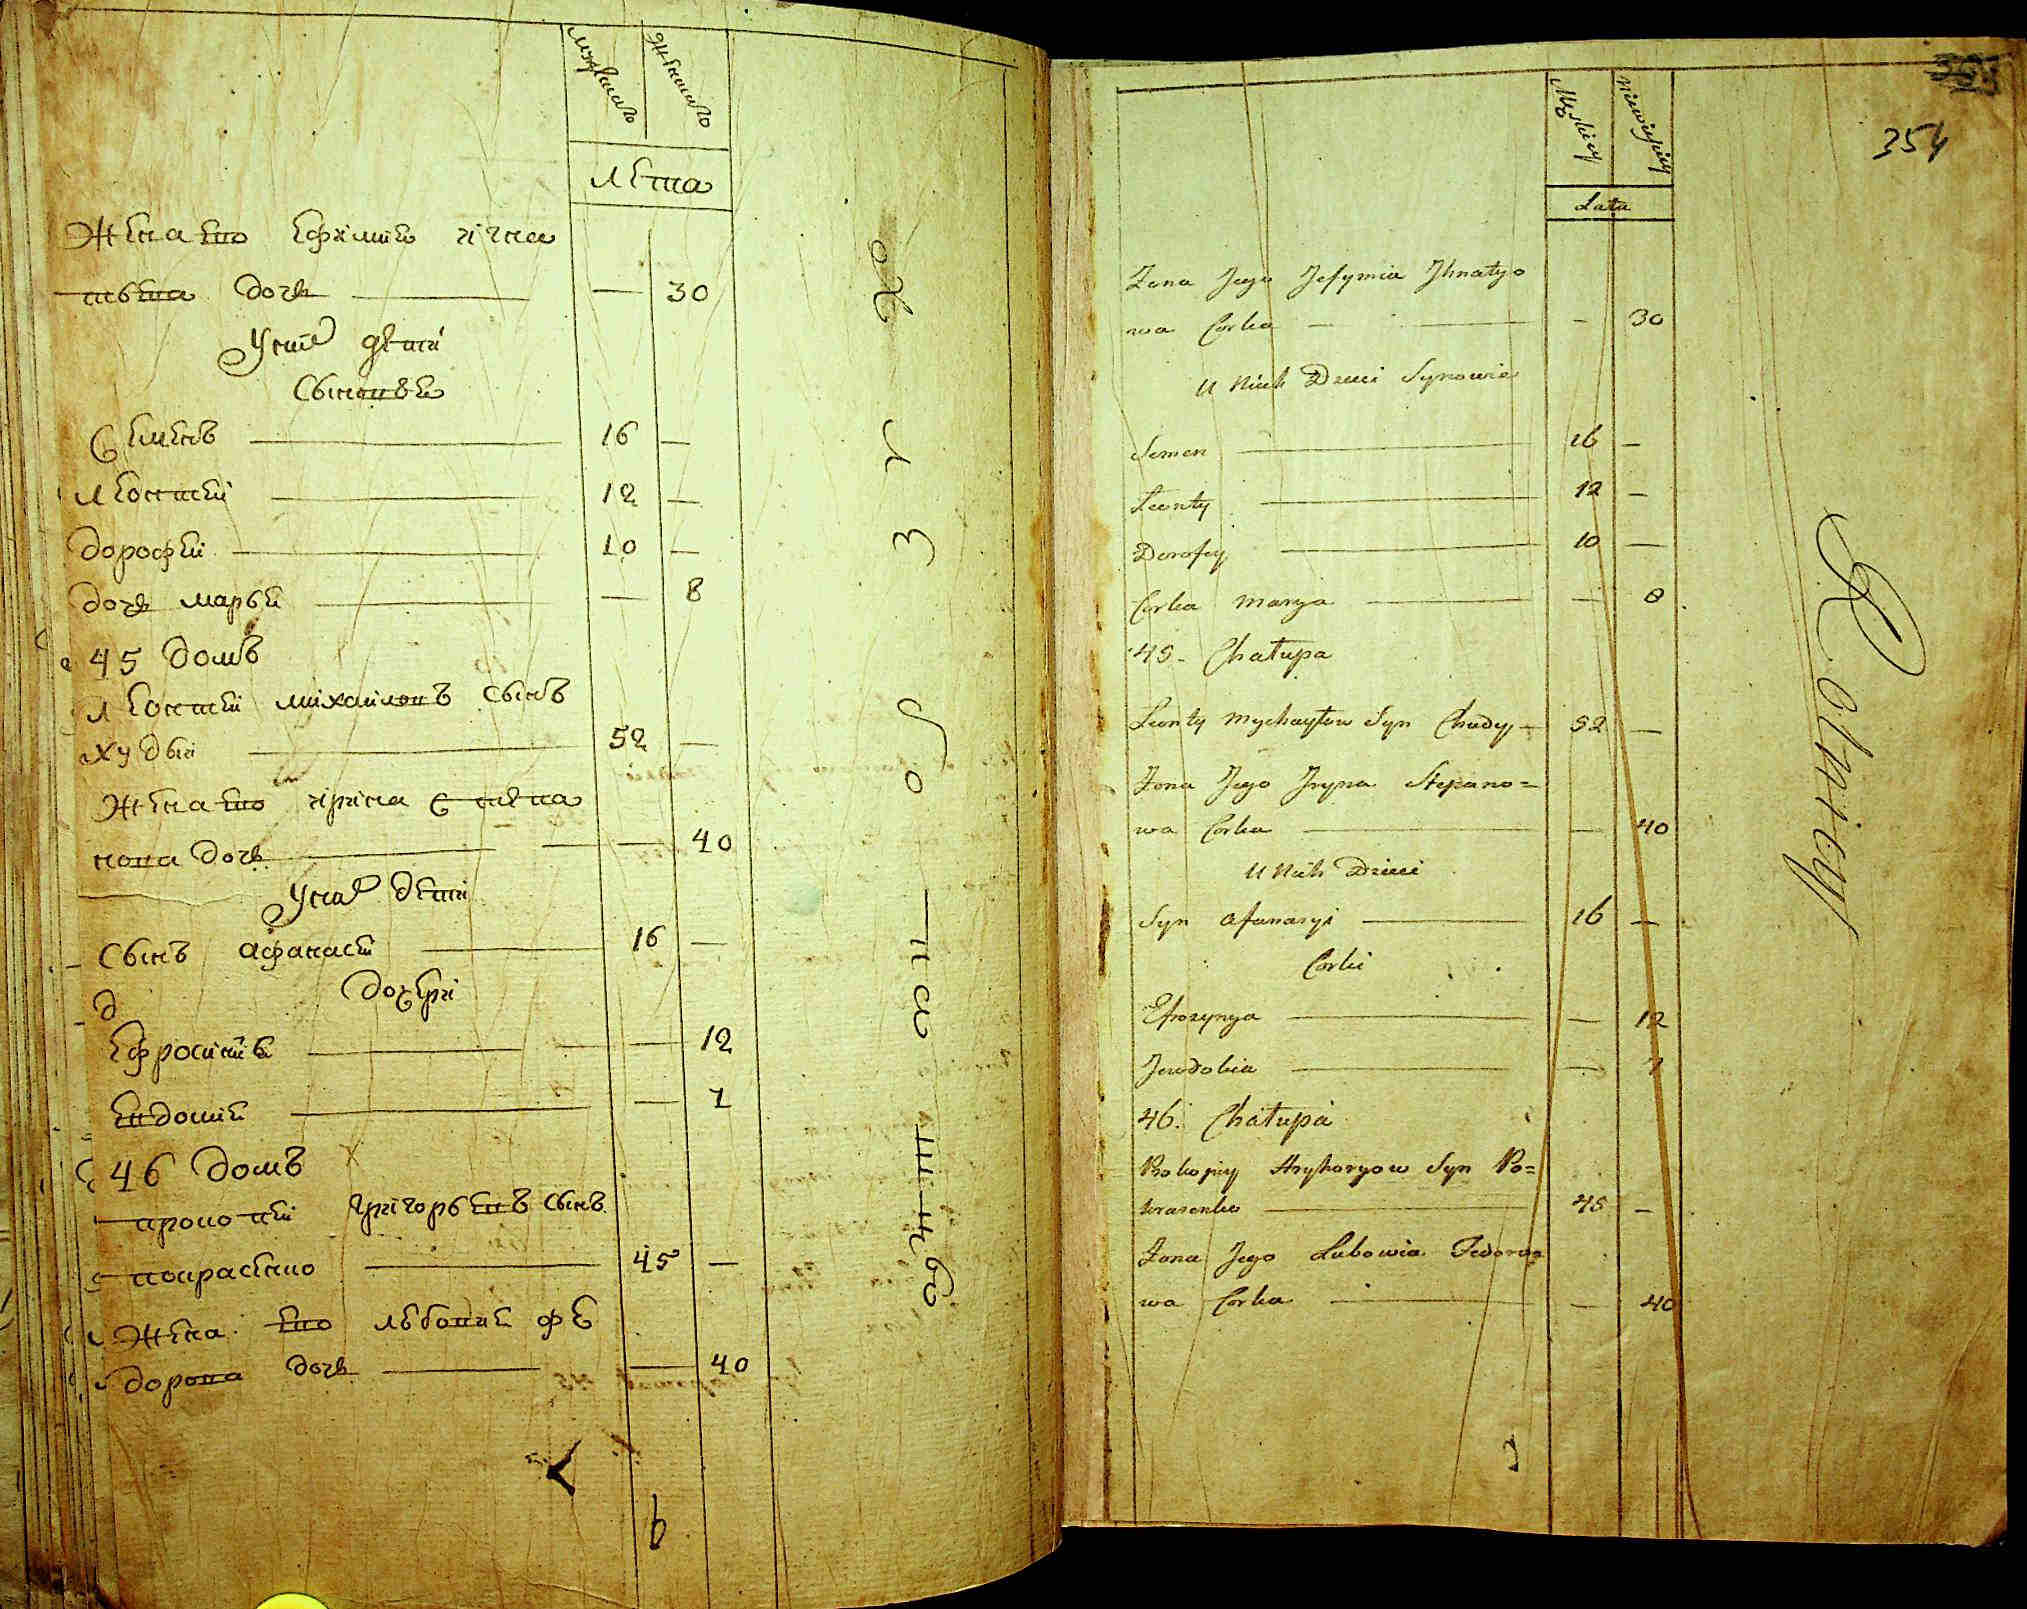 мужеска женска
лета
Жена его ефимия игна
тьева дочь — — 30
У них дети
Сыновья
Семенъ — 16 —
Леонтей — 12 —
дорофей — 10 —
дочь марья — — 8
45 домъ
Леонтей михайловъ сынъ
худый — 52 —
Жена его ирина степа
нова дочь — — 40
У них дети
Сынъ афанасей — 16 —
дочери
ефросинья — — 12
евдокия — — 7
46 домъ
прокопей григорьевъ сынъ
покрасенко — 45 —
Жена его любовия фе
дорова дочь — — 40
354
Męskiey niewieściey
Lata
Żona Jego Jefymia Jhnatyo
wa Corka — — 30
U Nich Dzieci Synowie
Semen — 16 —
Leonty — 12 —
Dorofey — 10 —
Corka Marya — — 8
45. Chałupa
Leonty Mychayłow Syn Chudy — 52 —
Żona Jego Jryna Stepano=
wa Corka — — 40
U Nich Dzieci
Syn Afanasyi — 16 —
Corki
Efrozynya — — 12
Jewdokia — — 7
46. Chałupa
Prokopiy Hryhoryow Syn Po=
krasenko — 45 —
Żona Jego Lubowia Fedoro
wa Corka — — 40